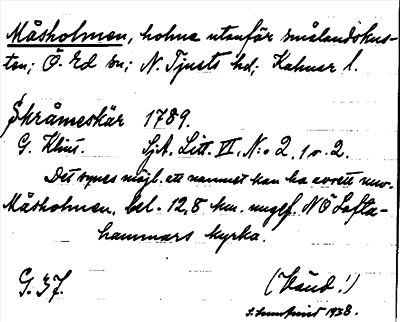 Måsholmen, holme utanför smålandskus-
ten; Ö. Ed sn; N. Tjusts hd; Kalmar l.
Skråmeskär 1789.
G. Klius. SjA. Litt. VI, N:o 2, 1 o. 2.
Det synes möjl. att namnet kan ha avsett nuv.
Måsholmen, bel. 12,8 km. ungef. NÖ Lofta-
hammars kyrka.
G. 37. (Vänd!)
1938.